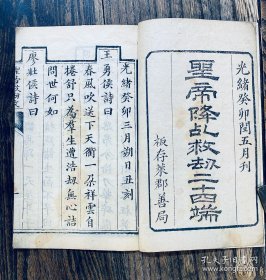 光緒癸卯閏五月刋
聖帝降乩救劫二十四端
板存萊郡善局
光緒癸卯三月朔日丑刻
王勇侯詩曰
春風吹送下天衢一朵祥雲自
捲舒只為羣生遭浩劫無心詰
問世何如
廖壯侯詩曰
孔夫子旧书网